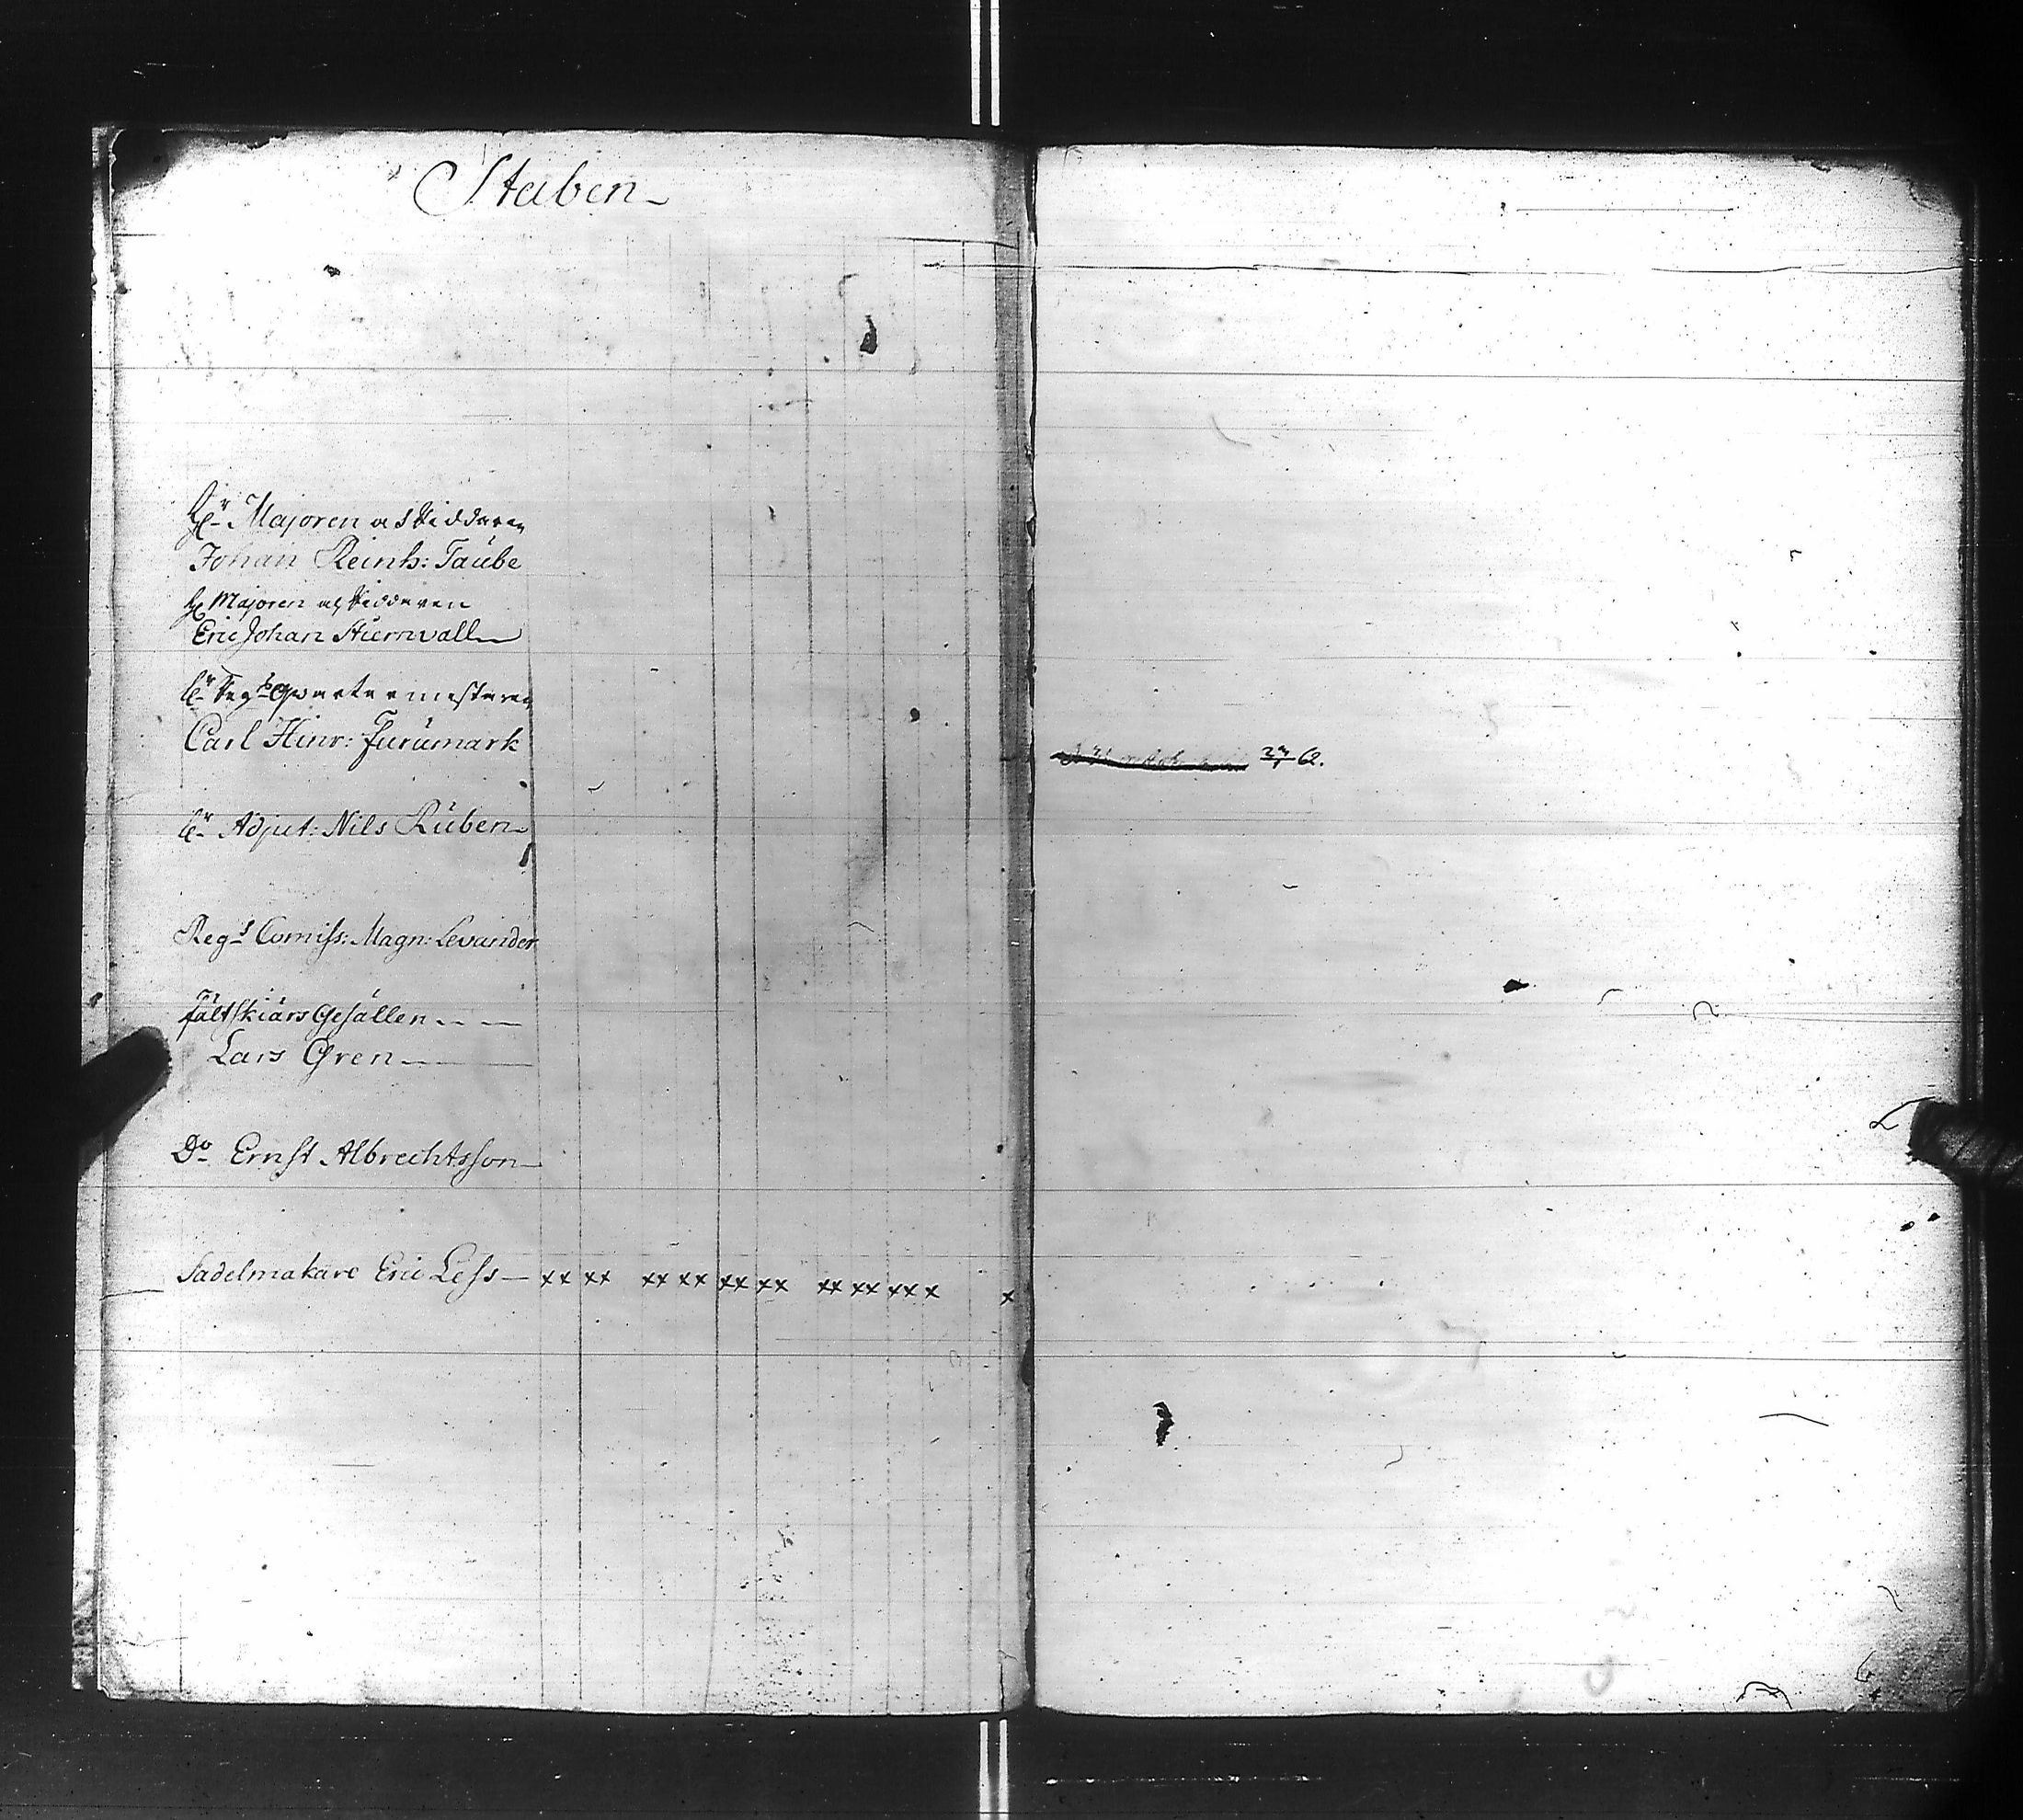 Staben
Hr Majoren och Riddaren
Johan Reinh: Taube
H Majoren och Riddaren
Eric Johan Stiernvall
Hr Regts Qvartermesteren
Carl Hinr: Furumark
27/1 Q.
Hr Adjut: Nils Ruben
Regs Comiss: Magn: Levander
fältskiärs Gesällen
Lars Gren
Do Ernst Albrechtsson
Sadelmakare Eric Less — xx xx xx xx xx xx xx xx xx x x